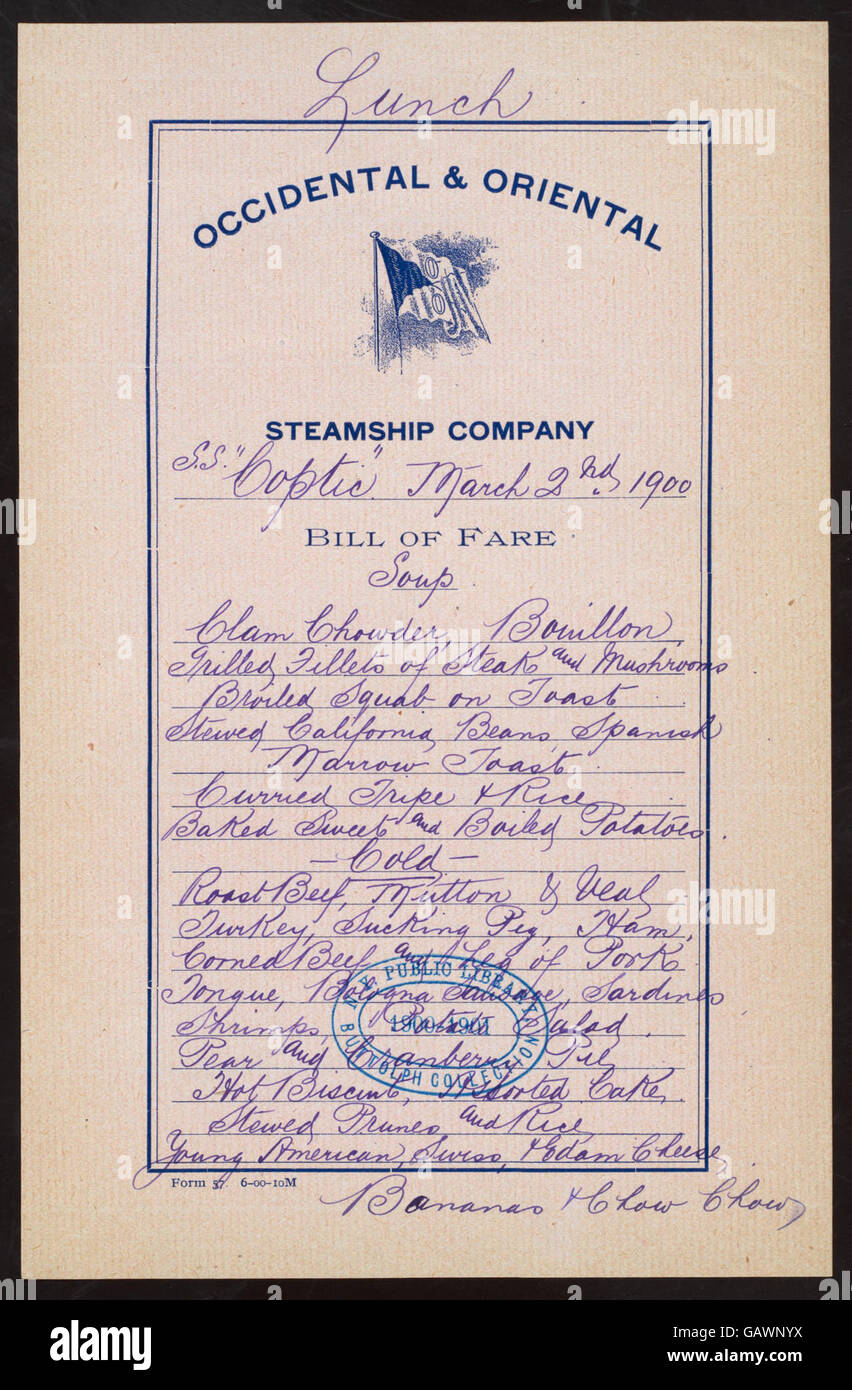 Lunch
OCCIDENTAL & ORIENTAL
O
O
STEAMSHIP COMPANY
S.S. "Coptic" March 2nd, 1900
BILL OF FARE
Soup
Clam Chowder, Bouillon
Grilled Fillets of Steak and Mushrooms
Broiled Squab on Toast
Stewed California Beans, Spanish
Marrow Toast
Curried Tripe & Rice
Baked Sweet and Boiled Potatoes.
— Cold —
Roast Beef, Mutton & Veal
Turkey, Sucking Pig, Ham,
Corned Beef and Leg of Pork
Tongue, Bologna Sausage, Sardines
Shrimps, Potato Salad.
Pear and Cranberry Pie
Hot Biscuit, Assorted Cake,
Stewed Prunes and Rice
Young American, Swiss, & Edam Cheese,
Bananas & Chow Chow
Form 57. 6-00-10M
N.Y. PUBLIC LIBRARY
1900-1901
BUTTOLPH COLLECTION
a
alamy
alamy
Image ID: GAWNYX
www.alamy.com